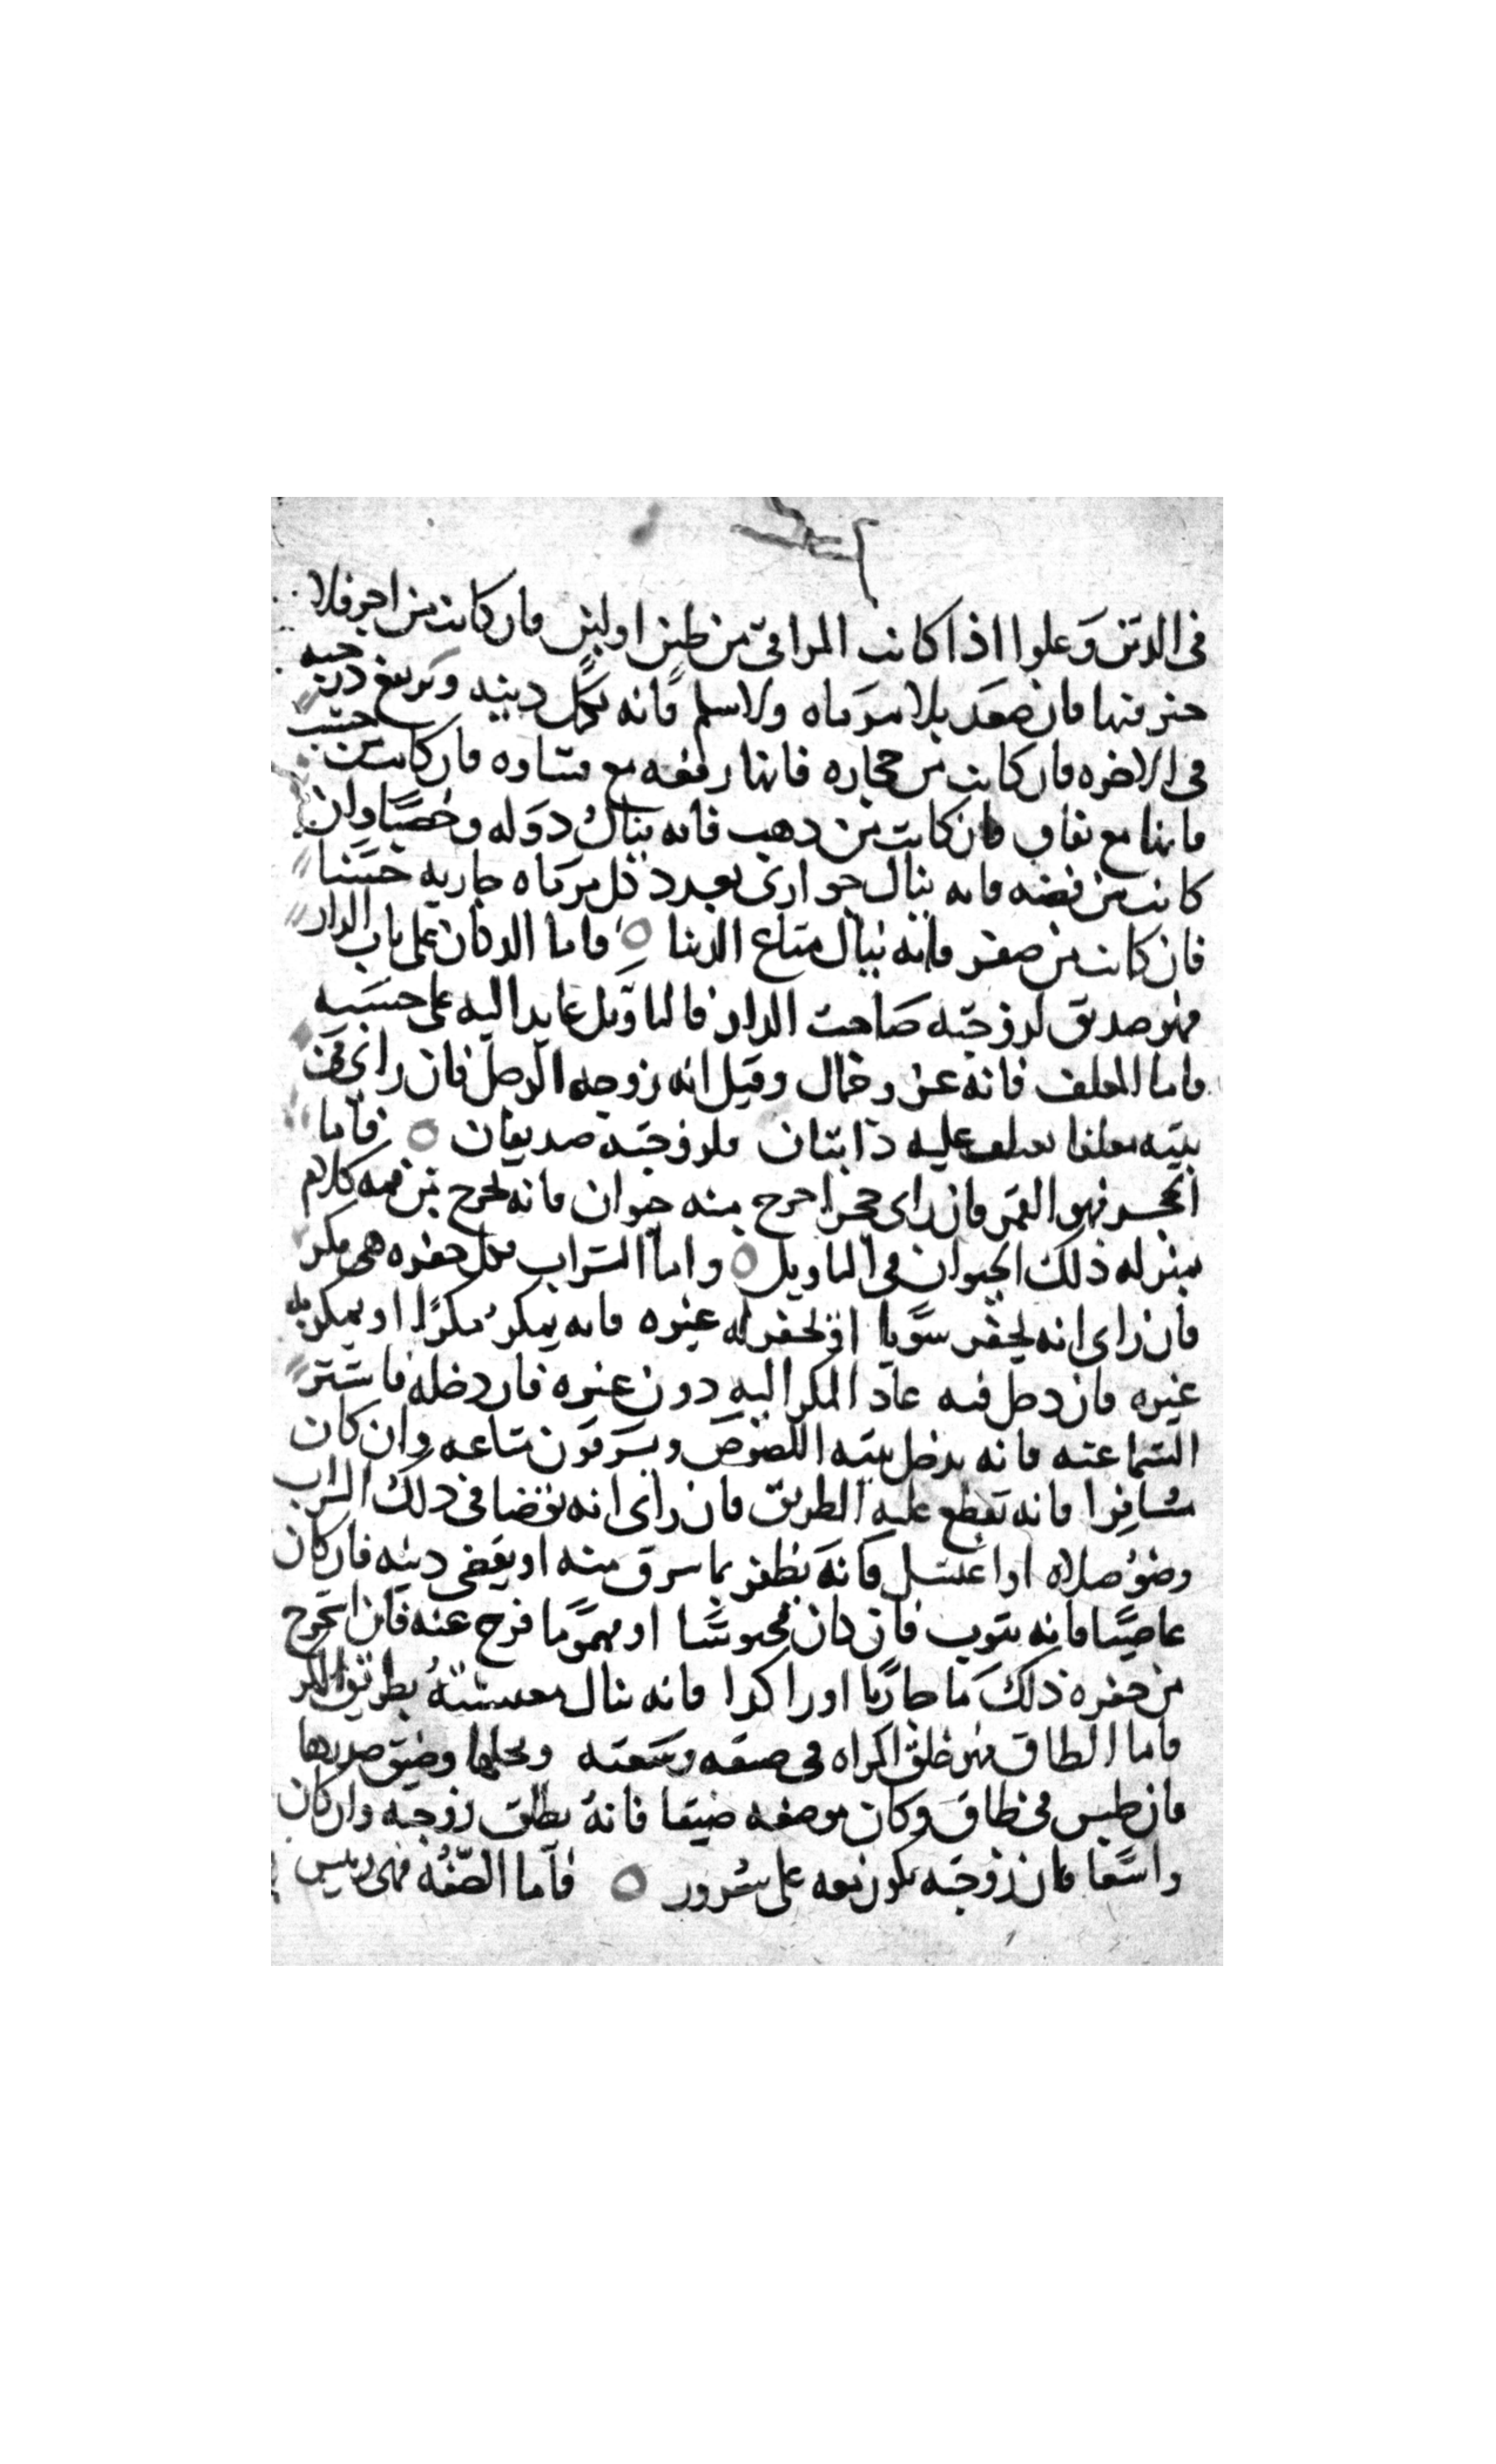 في الدين وعلوا اذا كانت المراقي من طين او لبن فان كانت من اجر فلا
خير فيها فان صعد بلا مرقاه ولا سلم فانه يكمل دينه وترتفع درجته
في الاخره فان كانت من حجاره فانها رفعه مع قساوه فان كانت من خشب
فانها مع نفاق فان كانت من ذهب فانه ينال دوله وخصبا وان
كانت من فضه فانه ينال جواري بعدد كل مرقاه جاريه حسنا
فان كانت من صفر فانه ينال متاع الدنيا ه فاما الدكان على باب الدار
فهو صديق لزوجته صاحب الدار فالتاويل عايد اليه على حسبه
فاما المعلف فانه عز وجمال وقيل انه زوجه الرجل فان راى في
بيته معلفا يعلف عليه دابتان فلزوجته صديقان ه فاما
الحجر فهو الفم فان راى حجرا خرج منه حيوان فانه يخرج من فمه كلام
بمنزله ذلك الحيوان في التاويل ه واما السراب فكل حفره هي مكر
فان راى انه يحفر سربا او يحفر له غيره فانه يمكر مكرا او يمكر به
غيره فان دخل فيه عاد المكر اليه دون غيره فان دخله فاستتر
السما عنه فانه يدخل بيته اللصوص ويسرقون متاعه وان كان
مسافرا فانه تقطع عليه الطريق فان راى انه توضا في ذلك السراب
وضو صلاه او اغتسل فانه يظفر بما سرق منه او يقضى دينه فان كان
عاصيا فانه يتوب فان كان محبوسا او مهموما فرج عنه فان استخرج
من حفره ذلك ما جاريا او راكدا فانه ينال معيشه بطريق المكر
فاما الطاق فهو خلق المراه في ضيقه وسعته وضيق صدرها
فان جلس في طاق وكان موضعه ضيقا فانه يطلق زوجته وان كان
واسعا فان زوجته تكون معه على سرور ه فاما الصفه فهي رييس